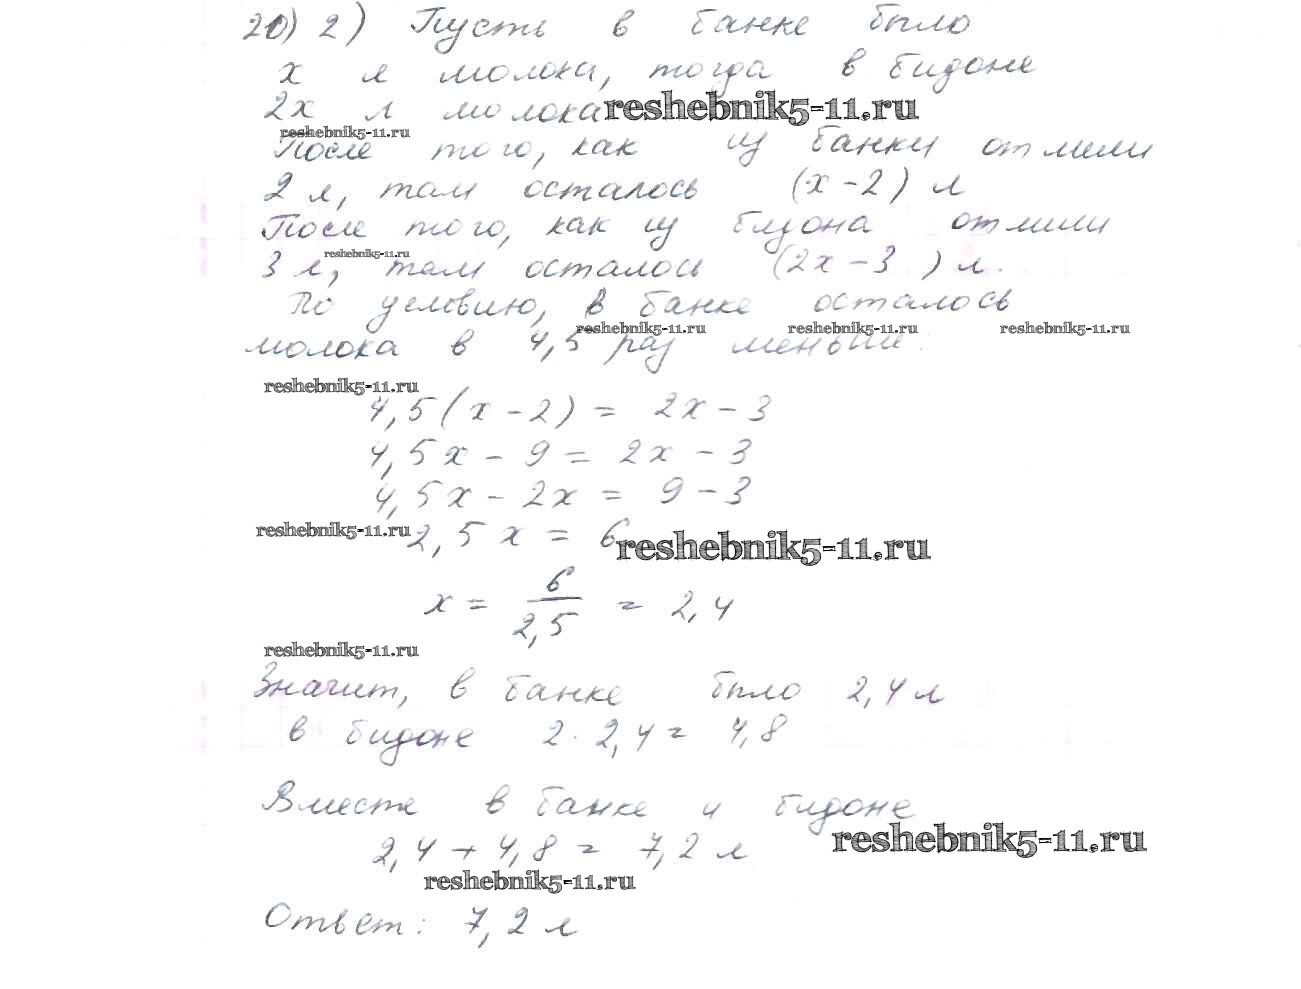 20) 2) Пусть в банке было
x л молока, тогда в бидоне
2x л молока reshebnik5-11.ru
reshebnik5-11.ru
После того, как из банки отлили
2 л, там осталось (x - 2) л
После того, как из бидона отлили
reshebnik5-11.ru
3 л, там осталось (2x - 3) л.
По условию, в банке осталось
reshebnik5-11.ru reshebnik5-11.ru reshebnik5-11.ru
молока в 4,5 раз меньше.
reshebnik5-11.ru
4,5(x - 2) = 2x - 3
4,5x - 9 = 2x - 3
4,5x - 2x = 9 - 3
reshebnik5-11.ru 2,5x = 6 reshebnik5-11.ru
x = 6/2,5 = 2,4
reshebnik5-11.ru
Значит, в банке было 2,4 л
в бидоне 2 · 2,4 = 4,8
Вместе в банке и бидоне
2,4 + 4,8 = 7,2 л reshebnik5-11.ru
reshebnik5-11.ru
Ответ: 7,2 л